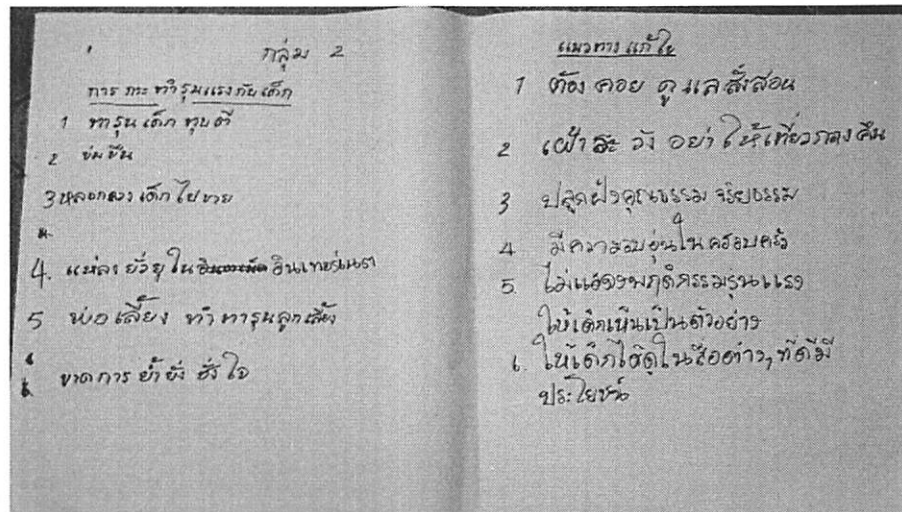 กลุ่ม 2
การ กระทำรุนแรงกับเด็ก
1 ทารุนเด็ก ทุบตี
2 ข่มขืน
3 หลอกลวงเด็กไปขาย
4. แหล่งยั่วยุใน อินเทอร์เนต
5 พ่อเลี้ยง ทำทารุนลูกเลี้ยง
6 ขาดการ ยั้ง ใจ
แนวทาง แก้ไข
1 ต้อง คอย ดูแลสั่งสอน
2 เฝ้า ระวัง อย่าให้เที่ยวกลางคืน
3 ปลูกฝังคุณธรรม จริยธรรม
4 มีความอบอุ่นในครอบครัว
5. ไม่แสดงพฤติกรรมรุนแรง
ให้เด็กเห็นเป็นตัวอย่าง
6. ให้เด็กได้ดูในสื่อต่างๆ ที่ดีมี
ประโยชน์